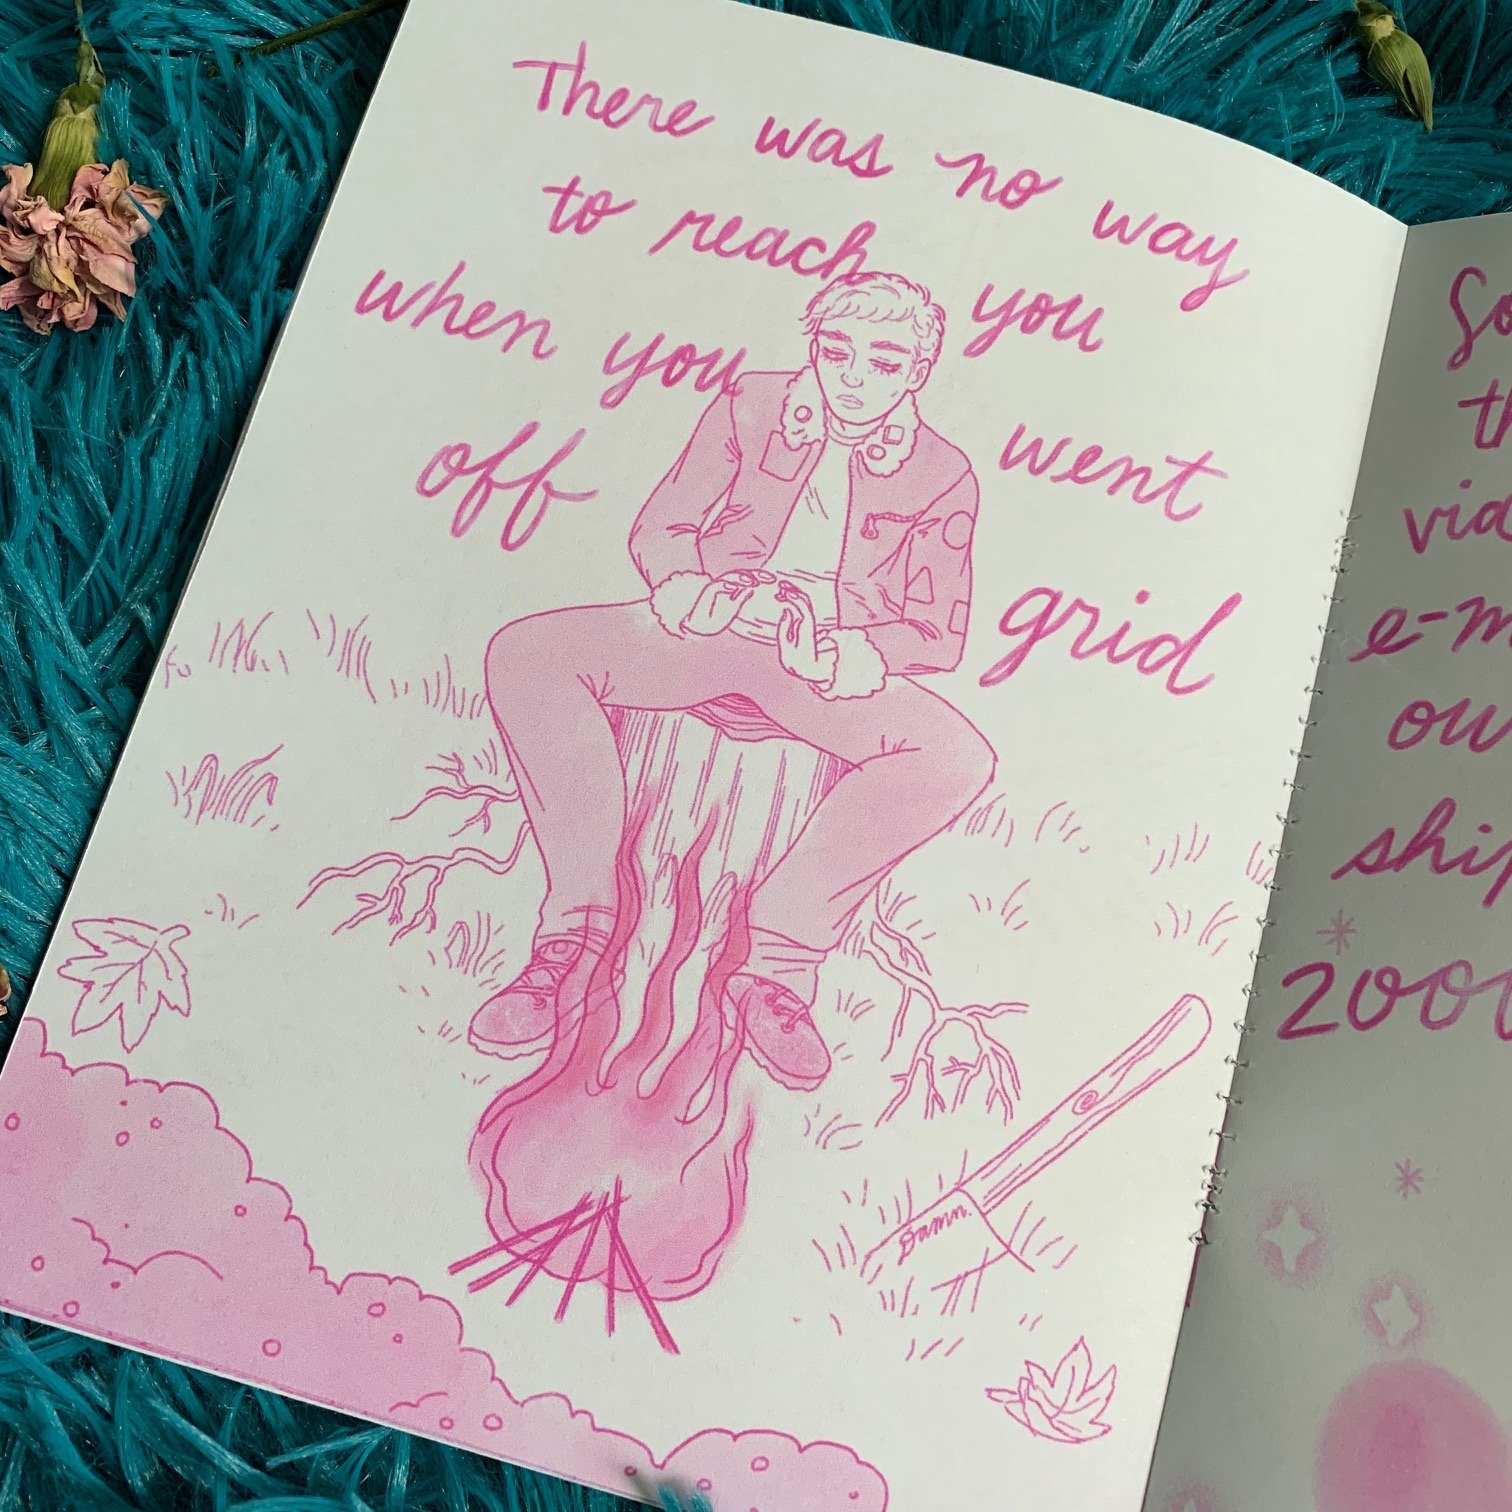 There was no way
to reach you
when you went
off grid
Damn.
via
e-m
ship